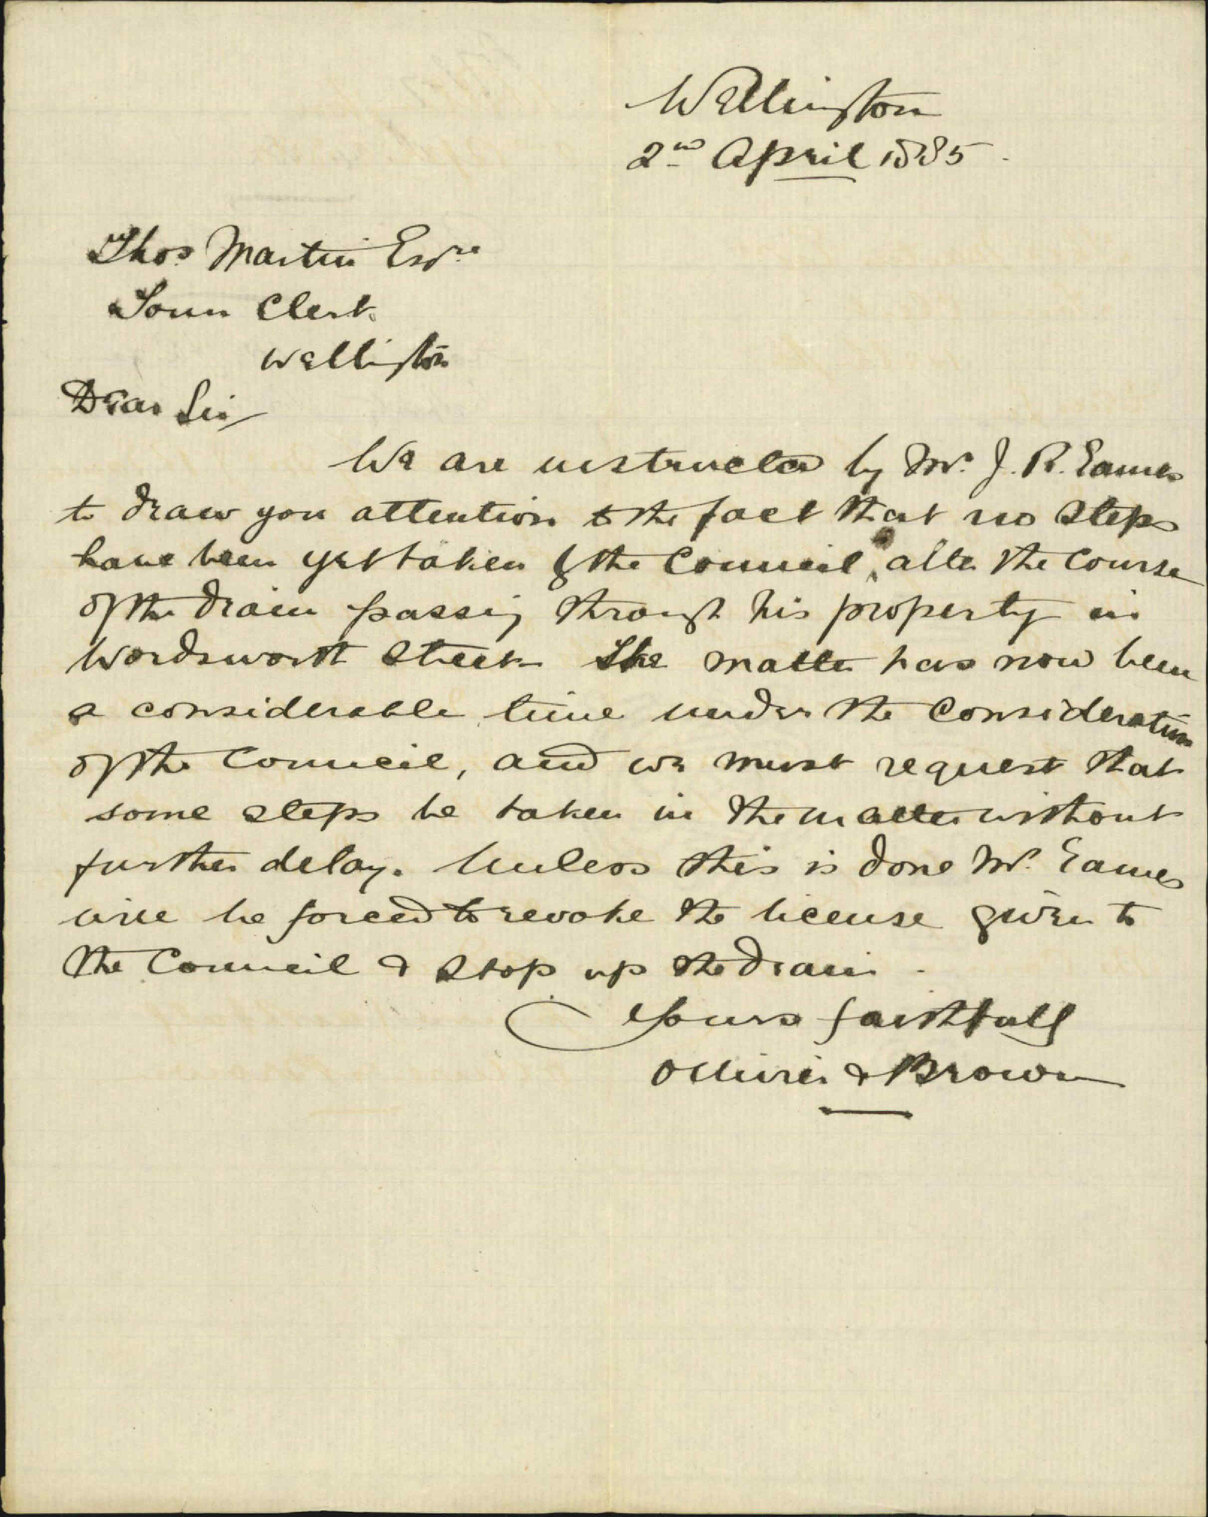 Wellington
2nd April 1885
Thos Martin Esqre
Town Clerk
Wellington
Dear Sir
We are instructed by Mr. J. R. Eames
to draw you attention to the fact that no steps
have been yet taken by the Council, alter the course
of the drain passing through his property in
Wordsworth Street. The matter has now been
a considerable time under the consideration
of the Council, and we must request that
some steps be taken in the matter without
further delay. Unless this is done Mr. Eames
will be forced to revoke the license given to
the Council & stop up the drain.
Yours faithfully
Ollivier & Brown